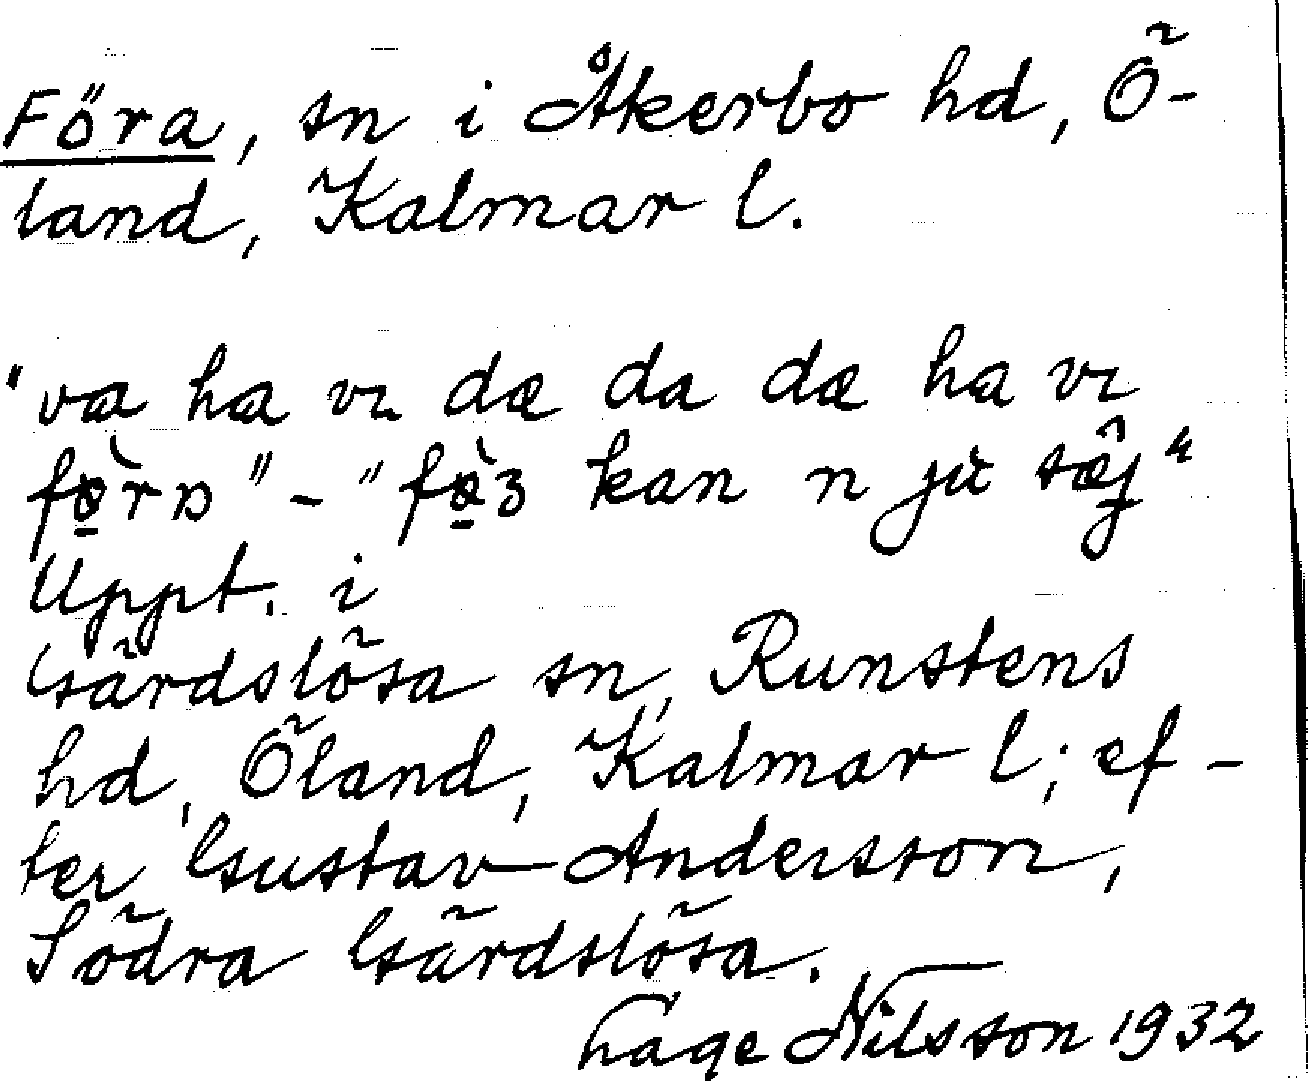 Föra, sn i Åkerbo hd, Ö-
land, Kalmar l.
"va ha vɩ dæ da dæ ha vɩ
fø̀rɒ" - "fø̀ꝫ kan n jù sæ̂j"
Uppt. i
Gärdslösa sn, Runstens
hd, Öland, Kalmar l; ef-
ter Gustav Andersson,
Södra Gärdslösa.
Lage Nilsson 1932